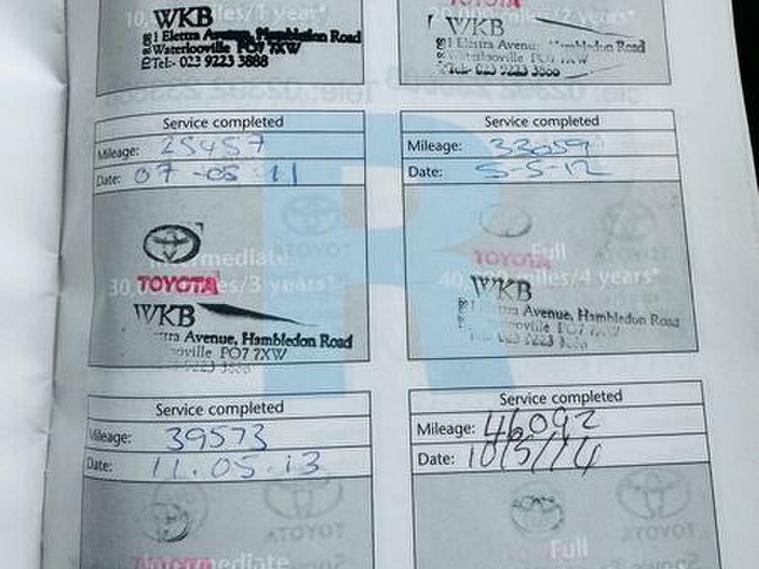 10,000 miles/1 year*
WKB
1 Elettra Avenue, Hambledon Road
Waterlooville PO7 7XW
Tel:- 023 9223 3888
TOYOTA
20,000 miles/2 years*
WKB
1 Elettra Avenue, Hambledon Road
Waterlooville PO7 7XW
Tel:- 023 9223 3888
Service completed
Mileage: 25457
Date: 07-05-11
Intermediate
30,000 miles/3 years*
TOYOTA
WKB
Avenue, Hambledon Road
PO7 7XW
Service completed
Mileage: 33059
Date: 5-5-12
TOYOTA
Full
40,000 miles/4 years*
WKB
1 Elettra Avenue, Hambledon Road
PO7 7XW
Service completed
Mileage: 39573
Date: 11.05.13
TOYOTA
Intermediate
Service completed
Mileage: 46092
Date: 10/5/14
Full